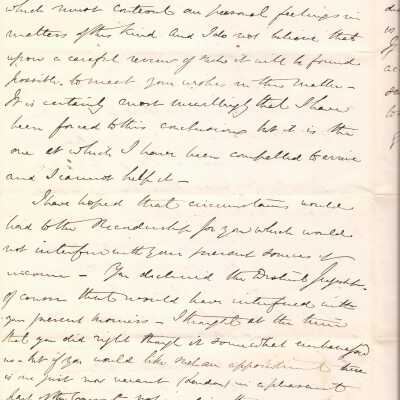 which must control our personal feelings in
matters of this kind. And I do not believe that
upon a careful review of it will be found
possible to meet your wishes in this matter –
It is certainly most unwillingly that I have
been forced to this conclusion but it is the
one at which I have been compelled to arrive
and I cannot help it –
I have hoped that circumstances would
lead to the for you which would
not interfere with your present sources of
income – You declined the District
of course that would have interfered with
your present – I thought at the time
that you did right though it somewhat embarrassed
us – but if you would like such an appointment there
is one just now vacant in a pleasant